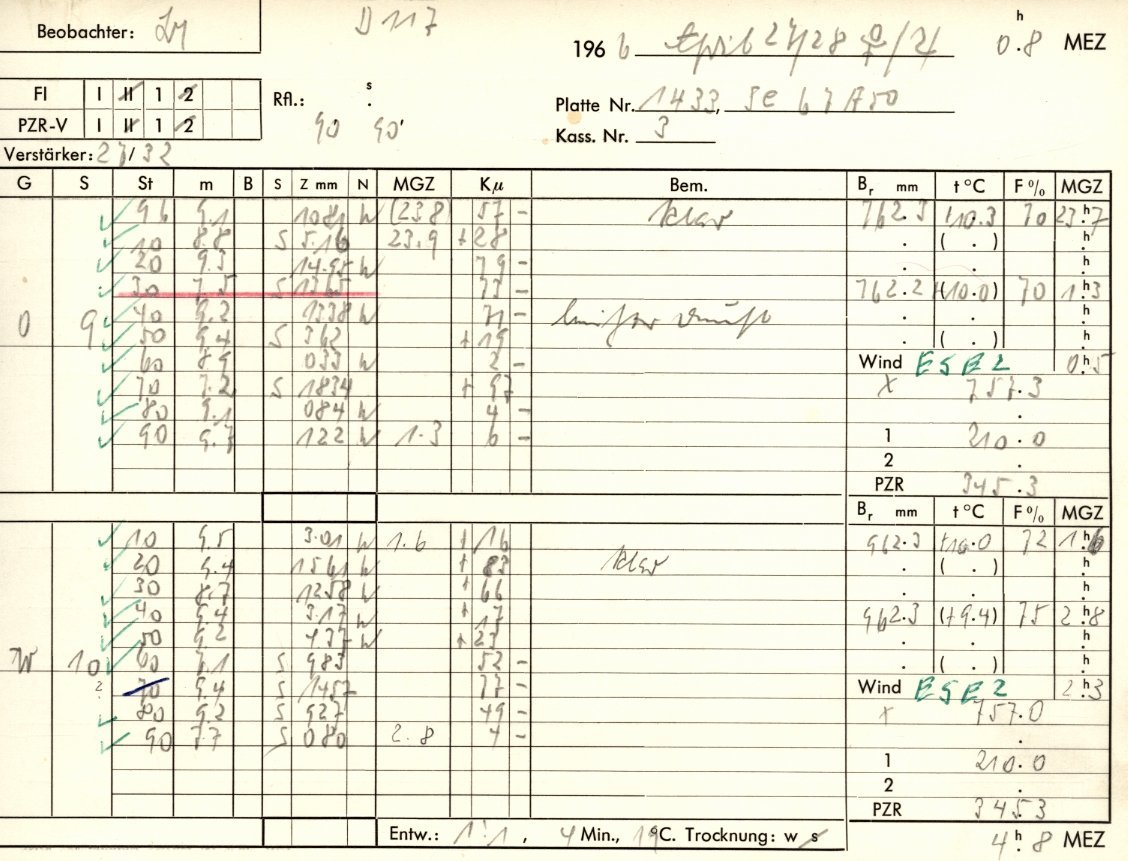 Beobachter:
D 117
196 6 April 27/28 ♀/♃ 0 h . 8 MEZ
FI I II 1 2
PZR-V I II 1 2
Rfl.: s .
90 90'
Platte Nr. 1433,
Kass. Nr. 3
Verstärker: 27/32
G S St m B S Z mm N MGZ Kµ Bem. Br mm t °C F % MGZ
96 9.1 N (23.8 57 - klar 762.3 70 23 h 7
10 8.8 S 5.16 23.9 + 28 . ( . ) h .
20 9.3 14.95 N 79 - . . h .
30 7.5 S 1365 73 - 762.2 (10.0) 70 1 h 3
O 9 40 9.2 1338 N 71 - . . h .
50 9.4 S 362 + 19 . ( . ) h .
60 8.9 033 N 2 - Wind ESE 2 0 h 5
70 7.2 S 1834 + 97 x 757.3
80 9.1 084 N 4 - .
90 9.7 122 N 1.3 6 - 1 210.0
2 .
PZR 345.3
Br mm t °C F % MGZ
10 9.5 3.01 N 1.6 + 16 962.3 +10.0 72 1 h 6
20 9.4 1561 N + 83 klar . ( . ) h .
30 8.7 1258 N + 66 . . h .
40 9.4 3.17 N + 17 962.3 (+9.4) 75 2 h 8
50 9.2 437 N + 23 . . h .
W 10 60 7.1 S 983 52 - . ( . ) h .
? 70 9.4 S 1457 77 - Wind ESE 2 2 h 3
80 9.2 S 927 49 - x 757.0
90 7.7 S 080 2.8 4 - .
1 210.0
2 .
PZR 345.3
Entw.: 1:1, 4 Min., 19°C. Trocknung: w s
4 h . 8 MEZ